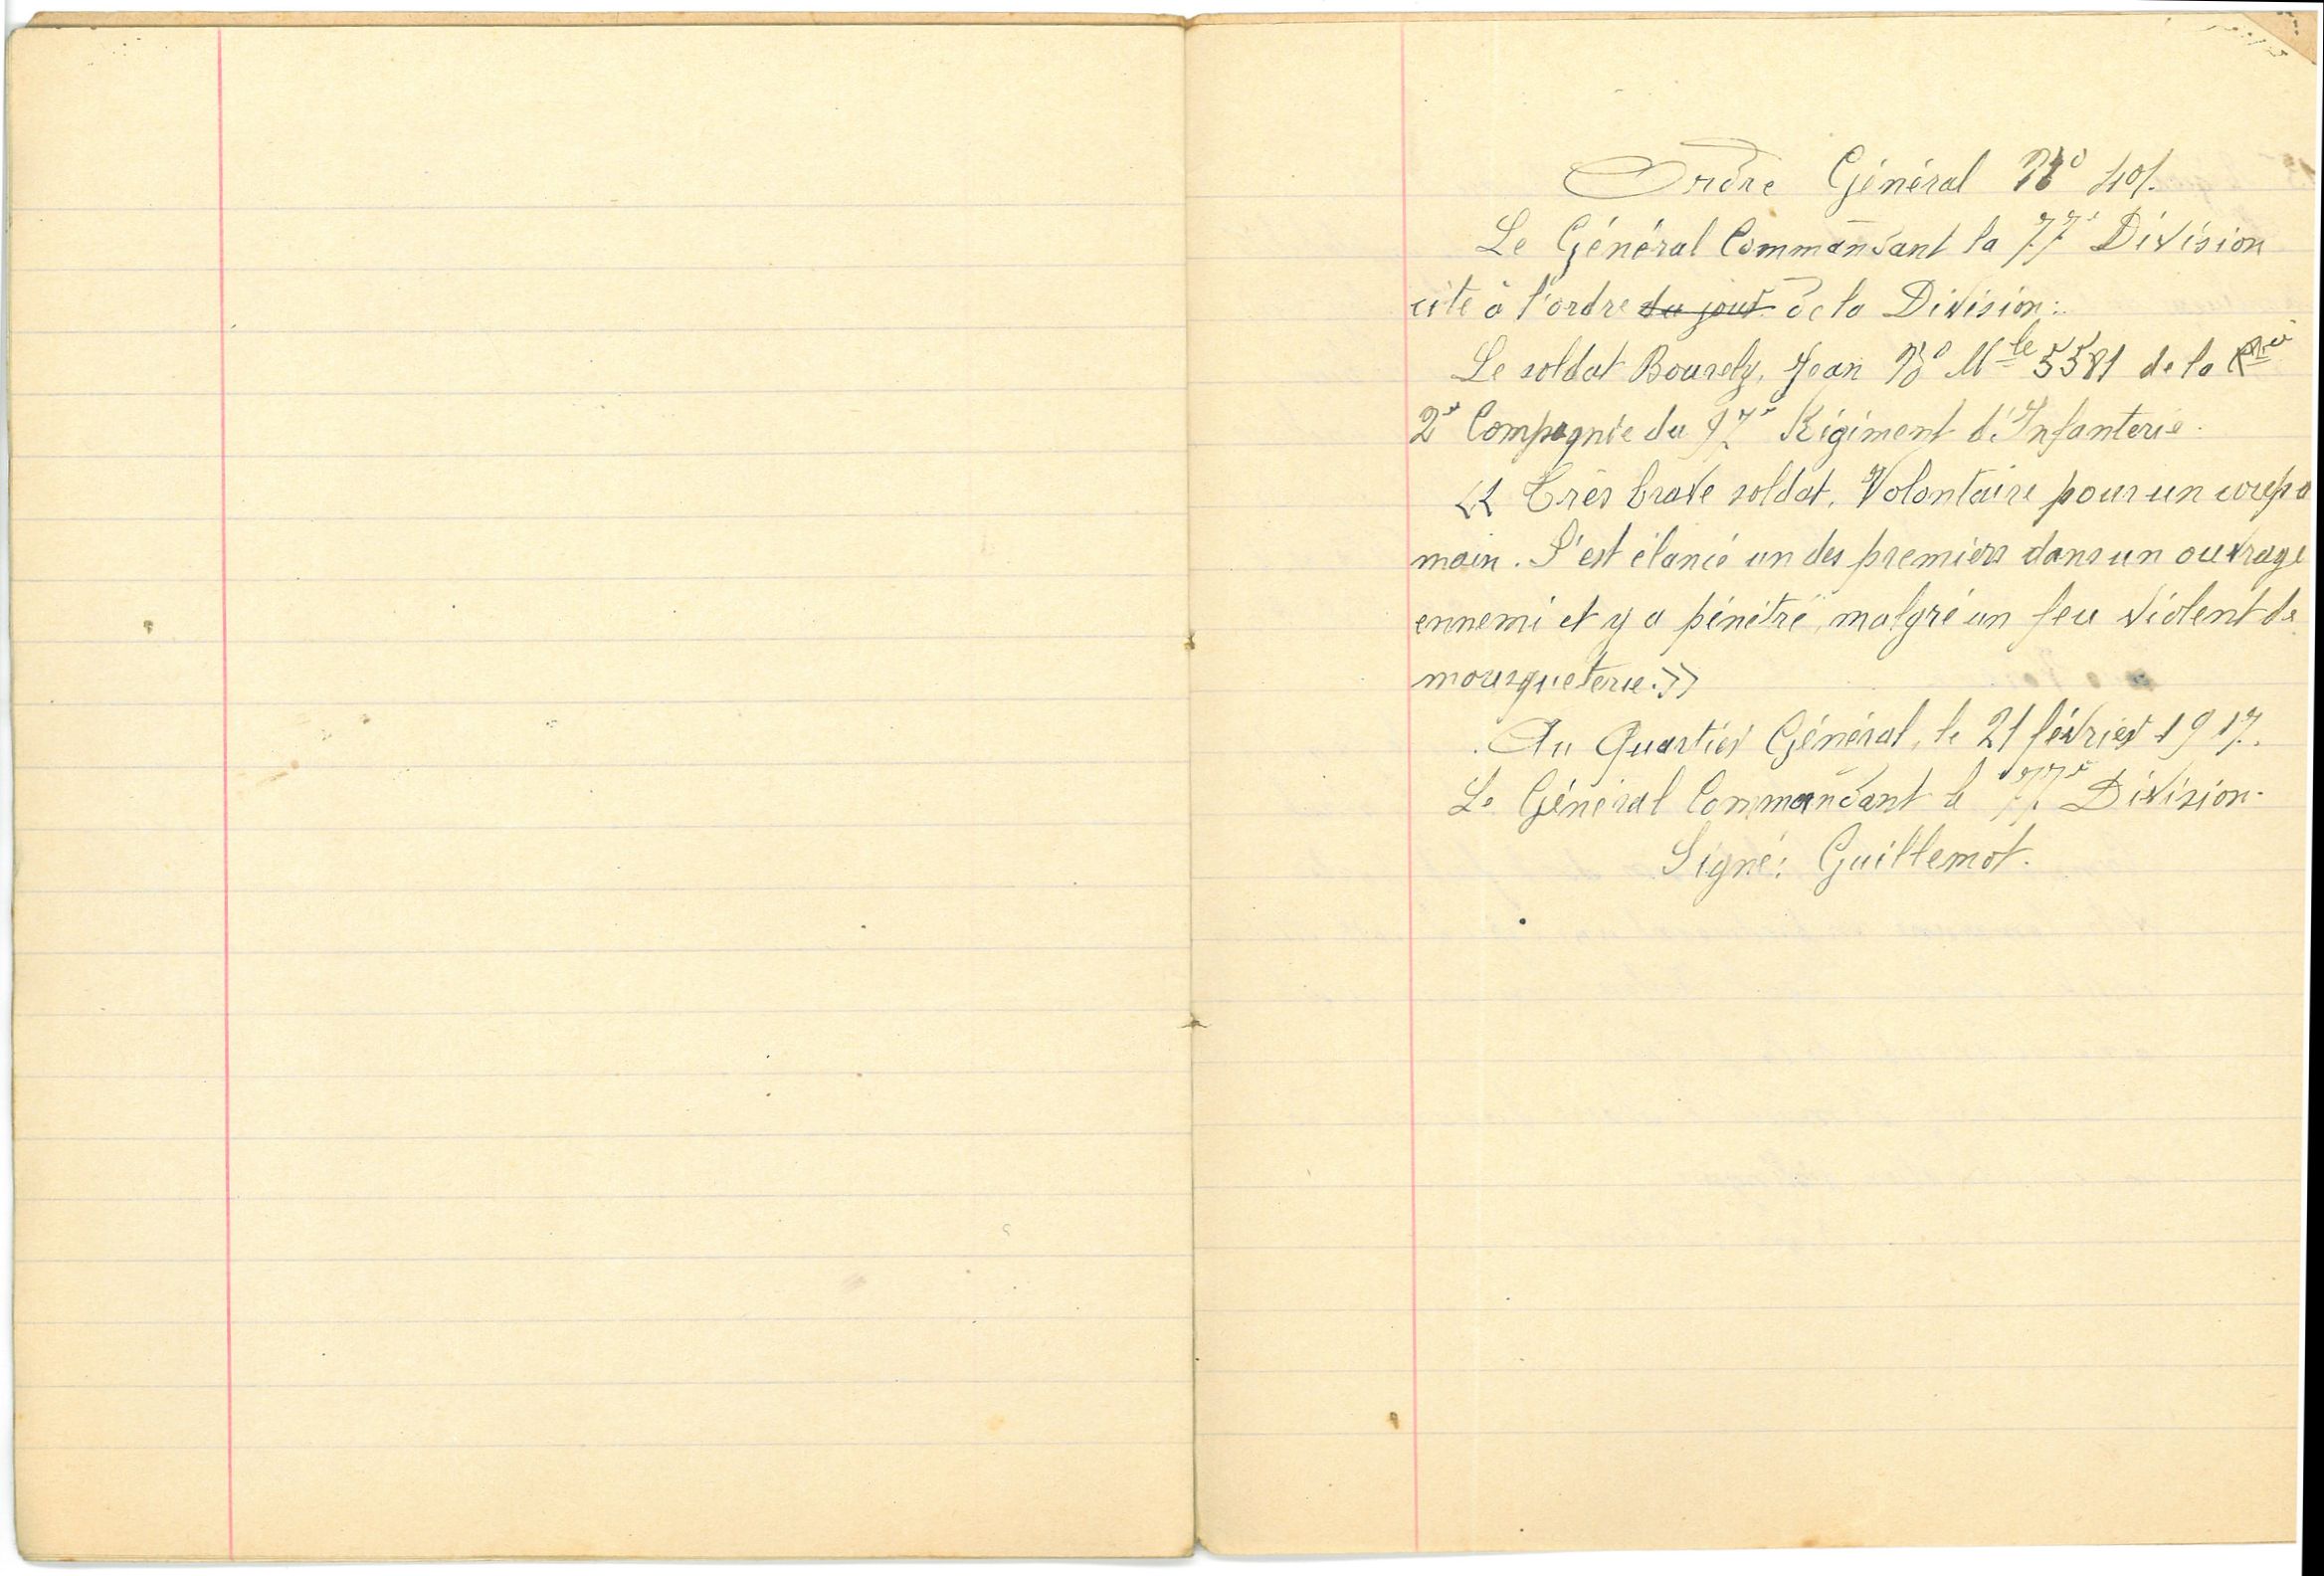 Ordre Général N° 401.
Le Général Commandant la 77e Division
cite à l'ordre du jour de la Division:
Le soldat Bourely, Jean N° Mle 5581 de la
2e Compagnie du 97e Régiment d'Infanterie.
« Très brave soldat. Volontaire pour un coup à
main. S'est élancé un des premiers dans un ouvrage
ennemi et y a pénétré malgré un feu violent de
mousqueterie.»
Au Quartier Général, le 21 février 1917.
Le Général Commandant la 77e Division.
Signé: Guillemot.